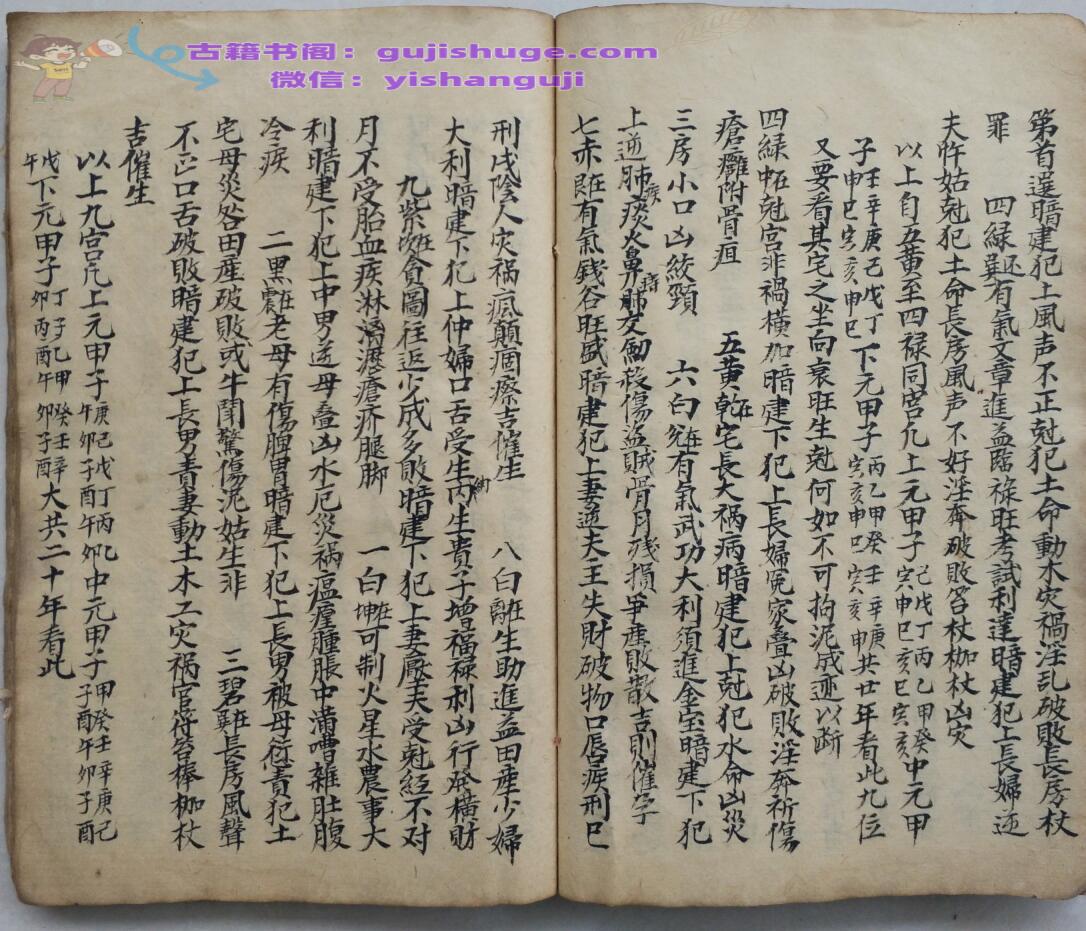 古籍书阁：gujishuge.com
微信：yishanguji
第首選暗建犯上風声不正尅犯土命動木灾禍淫乱破敗長房杖
罪 四緑还巽有氣文章進益臨祿旺考試利達暗建犯上長婦逆
夫忤姑尅犯土命長房風声不好淫奔破敗笞杖枷杖凶灾
以上自五黃至四禄同宫凢上元甲子己戊丁丙乙甲癸中元甲
子壬辛庚己戊丁下元甲子丙乙甲癸壬辛庚共廿年看此九位
子申巳亥申巳 亥申巳亥
又要看其宅之坐向衰旺生尅何如不可拘泥成迹以断
四緑在中尅宫非禍橫加暗建下犯上長婦冤家叠凶破敗淫奔祈傷
瘡癰附骨疽 五黄在乾宅長大禍病暗建犯上尅犯水命凶災
三房小口凶絞頸 六白在兑有氣武功大利須進金宝暗建下犯
上逆肺疾痰火鼻肺交劒殺傷盗賊骨月残損爭產敗散吉則催字
七赤在艮有氣錢谷旺盛暗建犯上妻逆夫王失財破物口唇疾刑巳
刑戌陰人灾禍瘋顛痼瘵吉催生 八白在離生助進益田產少婦
大利暗建下犯上仲婦口舌受生丙生貴子增福禄利凶行發橫財
九紫在坎貪圖往返少成多敗暗建下犯上妻壓夫受尅經不对
月不受胎血疾淋漓瀝瘡疥腿脚 一白在坤可制火星水農事大
利暗建下犯上中男逆母叠凶水厄災禍瘟瘽腫脹中滿嘈雜肚腹
冷疾 二黑在震老母有傷脾胃暗建下犯上長男被母忿責犯土
宅母災咎田產破敗或牛鬧驚傷泥姑生非 三碧在巽長房風聲
不正口舌破敗暗建犯上長男責妻動土木工灾禍官符笞棒枷杖
吉催生
以上九宫凢上元甲子庚己戊丁丙乙中元甲子甲癸壬辛庚己
午卯子酉午卯 子酉午卯子酉
戊下元甲子丁丙乙甲癸壬辛大共二十年看此
午 卯子酉午卯子酉